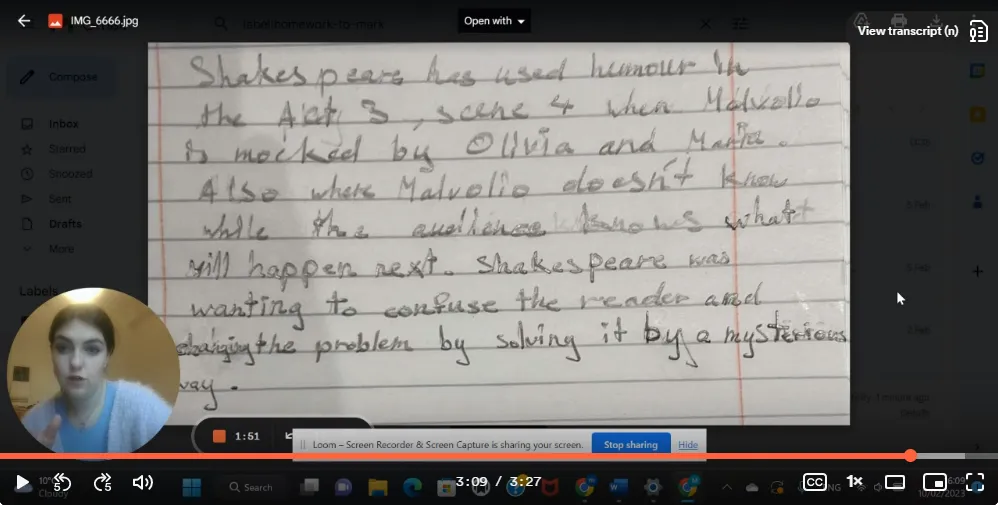 IMG_6666.jpg
label:homework-to-mark
Open with
View transcript (n)
Compose
Inbox
Starred
Snoozed
Sent
Drafts
More
Labels
Shakespeare has used humour in
the Act 3, scene 4 when Malvolio
is mocked by Olivia and Maria.
Also where Malvolio doesn't know
while the audience knows what
will happen next. Shakespeare was
wanting to confuse the reader and
the problem by solving it by a mysterious
way.
1:51
Loom – Screen Recorder & Screen Capture is sharing your screen.
Stop sharing
Hide
5
5
3:09 / 3:27
CC
1x
Cloudy
Search
10/02/2023